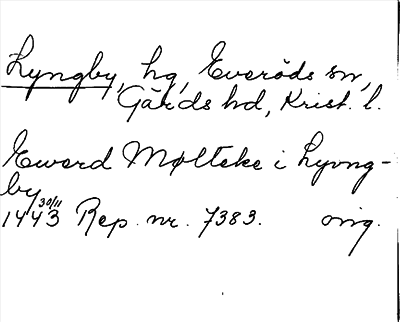 Lyngby, hg, Everöds sn,
Gärds hd, Krist. l.
Eward Mølteke i Lyvng-
by
1443 30/11 Rep. nr. 7383. orig.